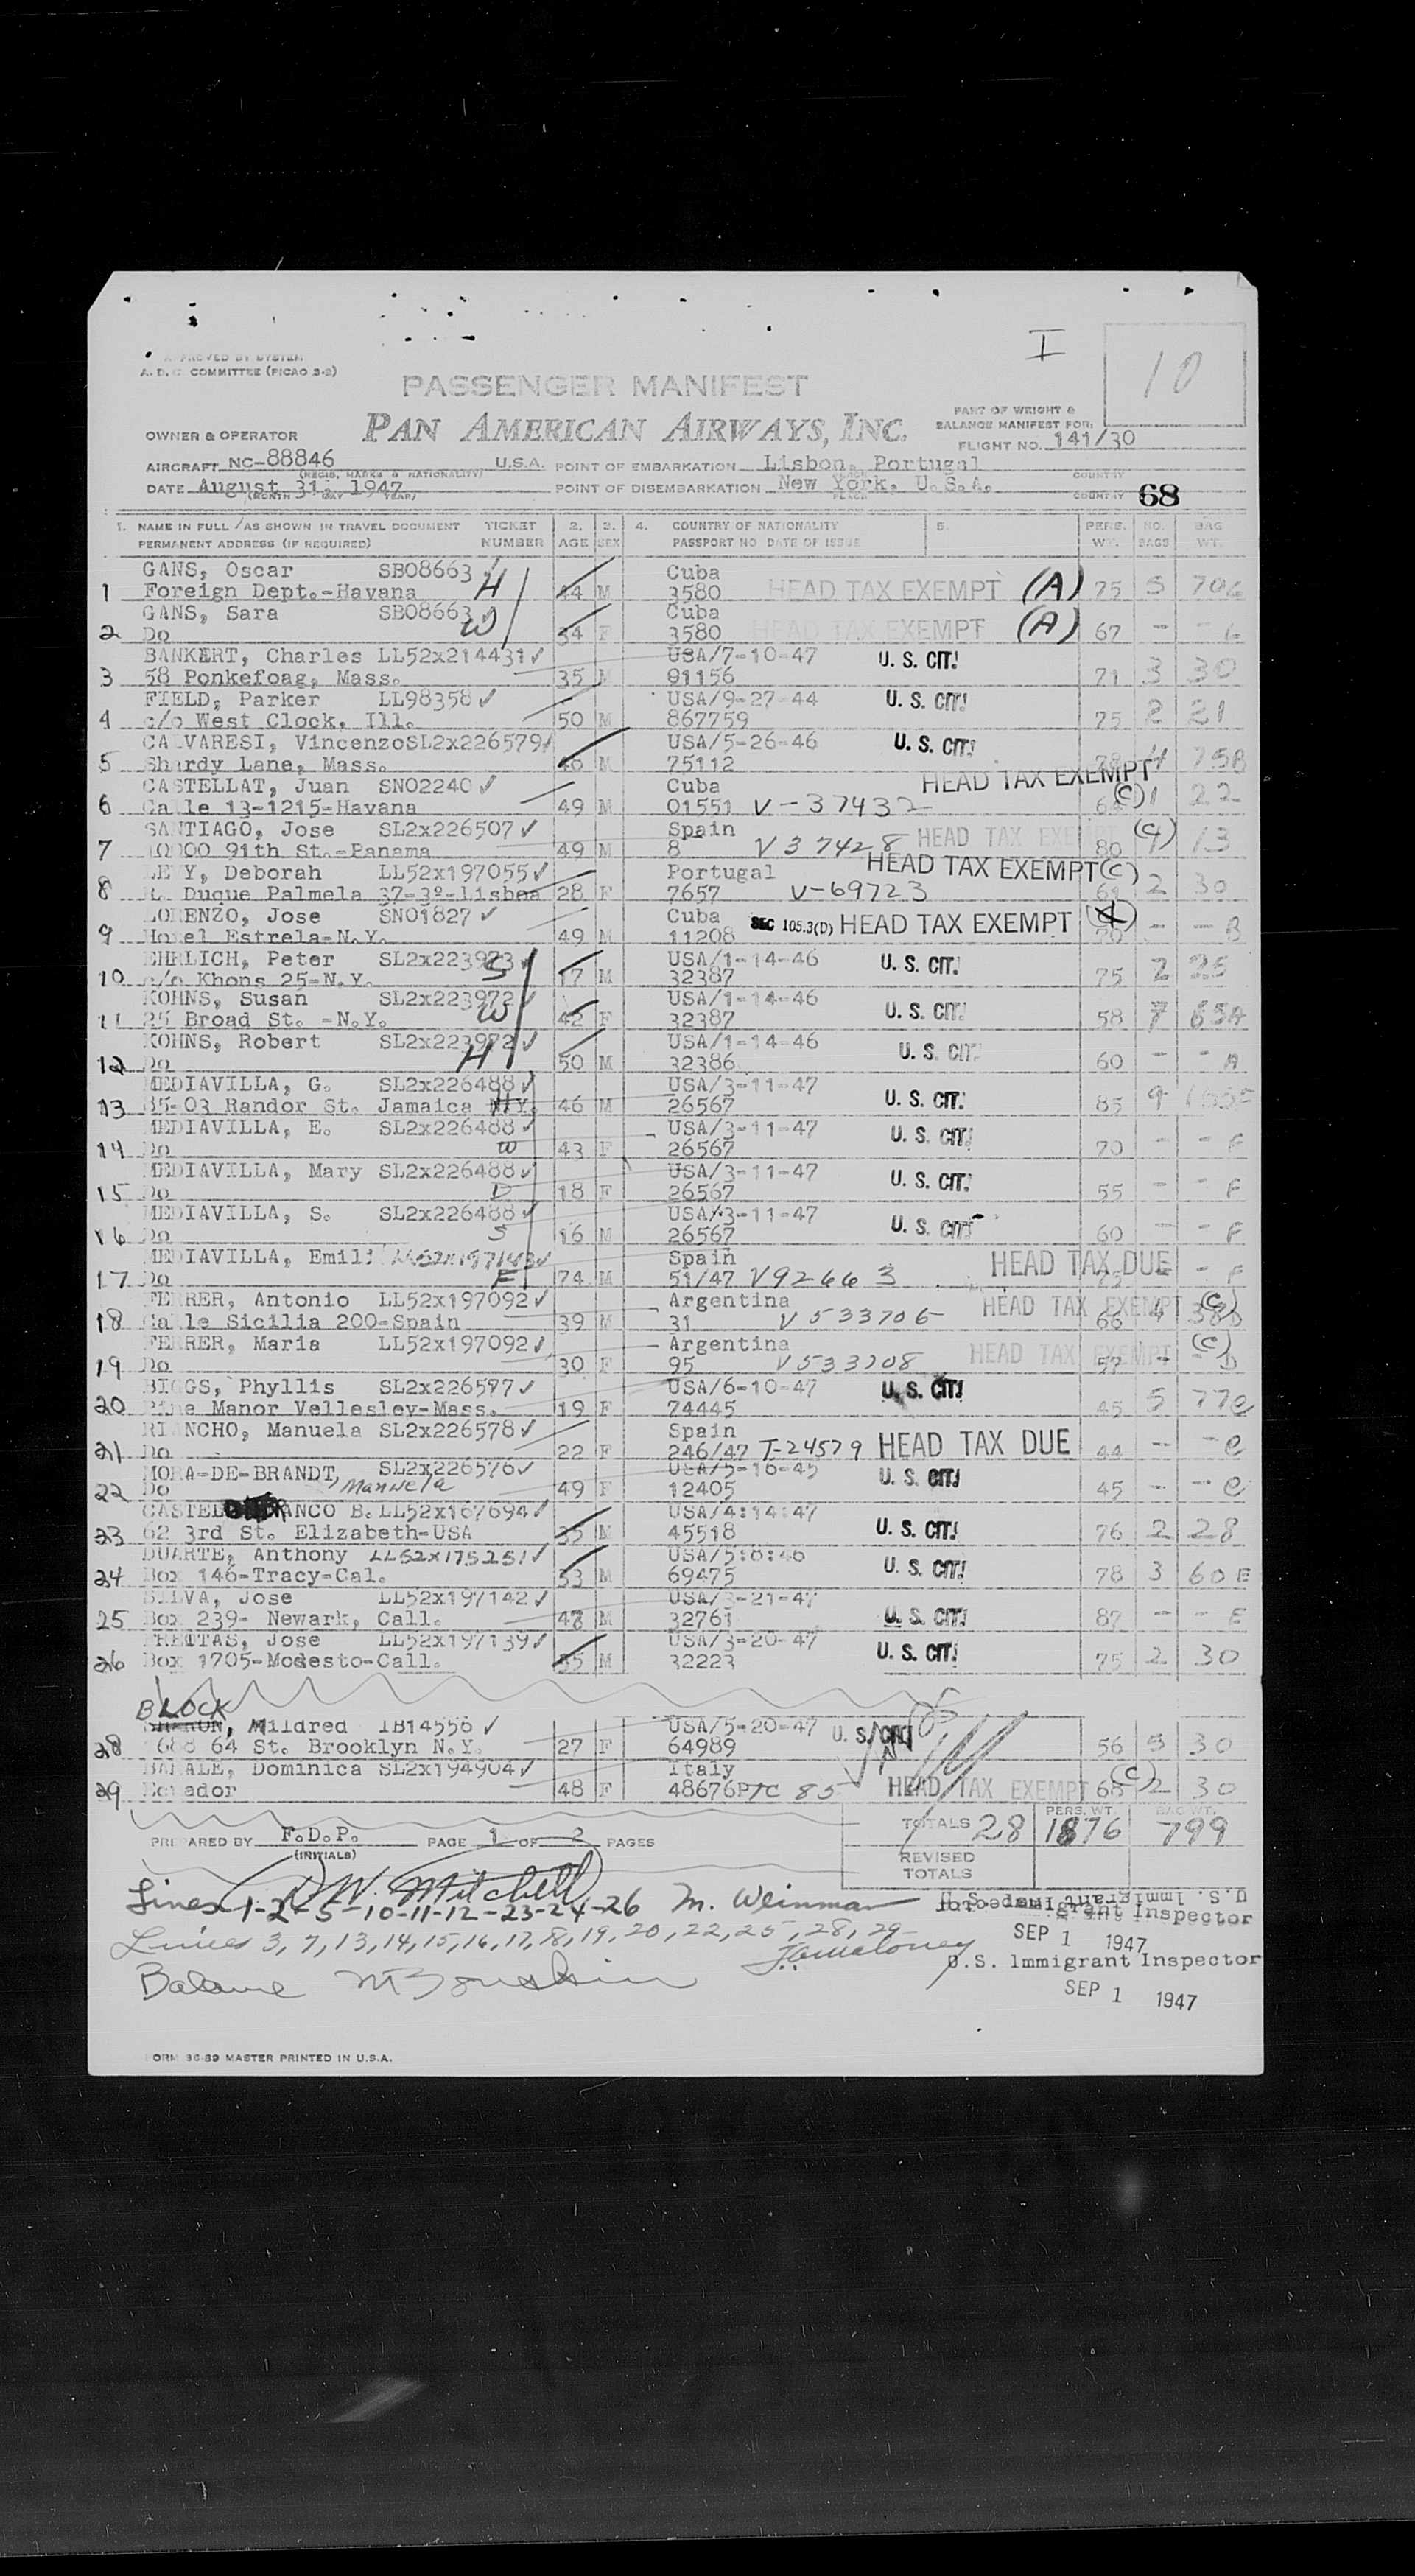 APPROVED BY SYSTEM
A. D. C. COMMITTEE (PICAO 3-2)
I
10
PASSENGER MANIFEST
PAN AMERICAN AIRWAYS, INC.
PART OF WEIGHT &
BALANCE MANIFEST FOR:
FLIGHT NO. 141/30
OWNER & OPERATOR
AIRCRAFT NC-88846 U.S.A. POINT OF EMBARKATION Lisbon, Portugal
(REGIS. MARKS & NATIONALITY) COUNTRY
DATE August 31, 1947 POINT OF DISEMBARKATION New York, U.S.A.
(MONTH DAY YEAR) PLACE COUNTRY 68
1. NAME IN FULL / AS SHOWN IN TRAVEL DOCUMENT TICKET 2. 3. 4. COUNTRY OF NATIONALITY 5. PERS. NO. BAG
PERMANENT ADDRESS (IF REQUIRED) NUMBER AGE SEX PASSPORT NO DATE OF ISSUE WT. BAGS WT.
GANS, Oscar SB08663 Cuba
1 Foreign Dept.-Havana H 44 M 3580 HEAD TAX EXEMPT (A) 75 5
GANS, Sara SB08663 Cuba
2 Do W 34 F 3580 HEAD TAX EXEMPT (A) 67 - -
BANKERT, Charles LL52x214431 ✓ USA/7-10-47 U. S. CIT.
3 58 Ponkefoag, Mass. 35 M 91156 71 3 30
FIELD, Parker LL98358 ✓ USA/9-27-44 U. S. CIT.
4 c/o West Clock, Ill. 50 M 867759 75 2 21
CALVARESI, Vincenzo SL2x226579 USA/5-26-46 U. S. CIT.
5 Shardy Lane, Mass. 46 M 75112 78 4 75B
CASTELLAT, Juan SN02240 ✓ Cuba HEAD TAX EXEMPT
6 Calle 13-1215-Havana 49 M 01551 V-37432 (C) 1 22
SANTIAGO, Jose SL2x226507 ✓ Spain HEAD TAX EXEMPT
7 10000 91th St.-Panama 49 M 8 V37428 80 13
LEVY, Deborah LL52x197055 ✓ Portugal HEAD TAX EXEMPT (C)
8 R. Duque Palmela 37-3º-Lisboa 28 F 7657 V-69723 61 2 30
LORENZO, Jose SN01827 ✓ Cuba SEC 105.3(D) HEAD TAX EXEMPT
9 Hotel Estrela-N.Y. 49 M 11208 70 - - B
EHRLICH, Peter SL2x223973 USA/1-14-46 U. S. CIT.
10 c/o Khons 25-N.Y. S 17 M 32387 75 2 25
KOHNS, Susan SL2x223972 ✓ USA/1-14-46 U. S. CIT.
11 25 Broad St. -N.Y. W 42 F 32387 58 7 65A
KOHNS, Robert SL2x223972 ✓ USA/1-14-46 U. S. CIT.
12 Do H 50 M 32386 60 - - A
MEDIAVILLA, G. SL2x226488 ✓ USA/3-11-47 U. S. CIT.
13 85-03 Randor St. Jamaica N.Y. H 46 M 26567 85 9
MEDIAVILLA, E. SL2x226488 ✓ USA/3-11-47 U. S. CIT.
14 Do W 43 F 26567 70 - - F
MEDIAVILLA, Mary SL2x226488 ✓ USA/3-11-47 U. S. CIT.
15 Do D 18 F 26567 55 - - F
MEDIAVILLA, S. SL2x226488 ✓ USA/3-11-47 U. S. CIT.
16 Do S 16 M 26567 60 - - F
MEDIAVILLA, Emili LL52x197143 ✓ Spain HEAD TAX DUE
17 Do F 74 M 51/47 V92663 75 - - F
FERRER, Antonio LL52x197092 ✓ Argentina HEAD TAX EXEMPT (C)
18 Calle Sicilia 200-Spain 39 M 31 V533706 66 4 38D
FERRER, Maria LL52x197092 ✓ Argentina HEAD TAX EXEMPT (C)
19 Do 30 F 95 V533708 57 - - D
BIGGS, Phyllis SL2x226577 ✓ USA/6-10-47 U. S. CIT.
20 Pine Manor Vellesley-Mass. 19 F 74445 45 5 77C
RIANCHO, Manuela SL2x226578 ✓ Spain
21 Do 22 F 246/47 T-24579 HEAD TAX DUE 44 - - C
MORA-DE-BRANDT, Manuela SL2x226576 ✓ USA/5-16-45 U. S. CIT.
22 Do 49 F 12405 45 - - C
CASTEL ANCO B. LL52x167694 ✓ USA/4:14:47
23 62 3rd St. Elizabeth-USA 35 M 45518 U. S. CIT. 76 2 28
DUARTE, Anthony LL52x175251 ✓ USA/5:6:46
24 Box 146-Tracy-Cal. 53 M 69475 U. S. CIT. 78 3 60E
SILVA, Jose LL52x197142 ✓ USA/3-21-47
25 Box 239- Newark, Call. 47 M 32761 U. S. CIT. 87 - - E
FREITAS, Jose LL52x197139 ✓ USA/3-20-47
26 Box 1705-Modesto-Call. 35 M 32223 U. S. CIT. 75 2 30
BLOCK
Mildred IB14556 ✓ USA/5-20-47 U. S. CIT.
28 668 64 St. Brooklyn N.Y. 27 F 64989 56 5 30
BAHALE, Dominica SL2x194904 ✓ Italy
29 Ecuador 48 F 48676 PTC 85 HEAD TAX EXEMPT (C) 68 2 30
PERS. WT. BAG WT.
TOTALS 28 1876 799
PREPARED BY F.D.P. PAGE 1 OF 2 PAGES
(INITIALS)
REVISED
TOTALS
D.W. Mitchell
Lines 1-2-5-10-11-12-23-24-26 M. Weinman U.S. Immigrant Inspector
SEP 1 1947
Lines 3, 7, 13, 14, 15, 16, 17, 18, 19, 20, 22, 25, 28, 29 J.A. Maloney
U.S. Immigrant Inspector
Balance
SEP 1 1947
FORM 36-89 MASTER PRINTED IN U.S.A.